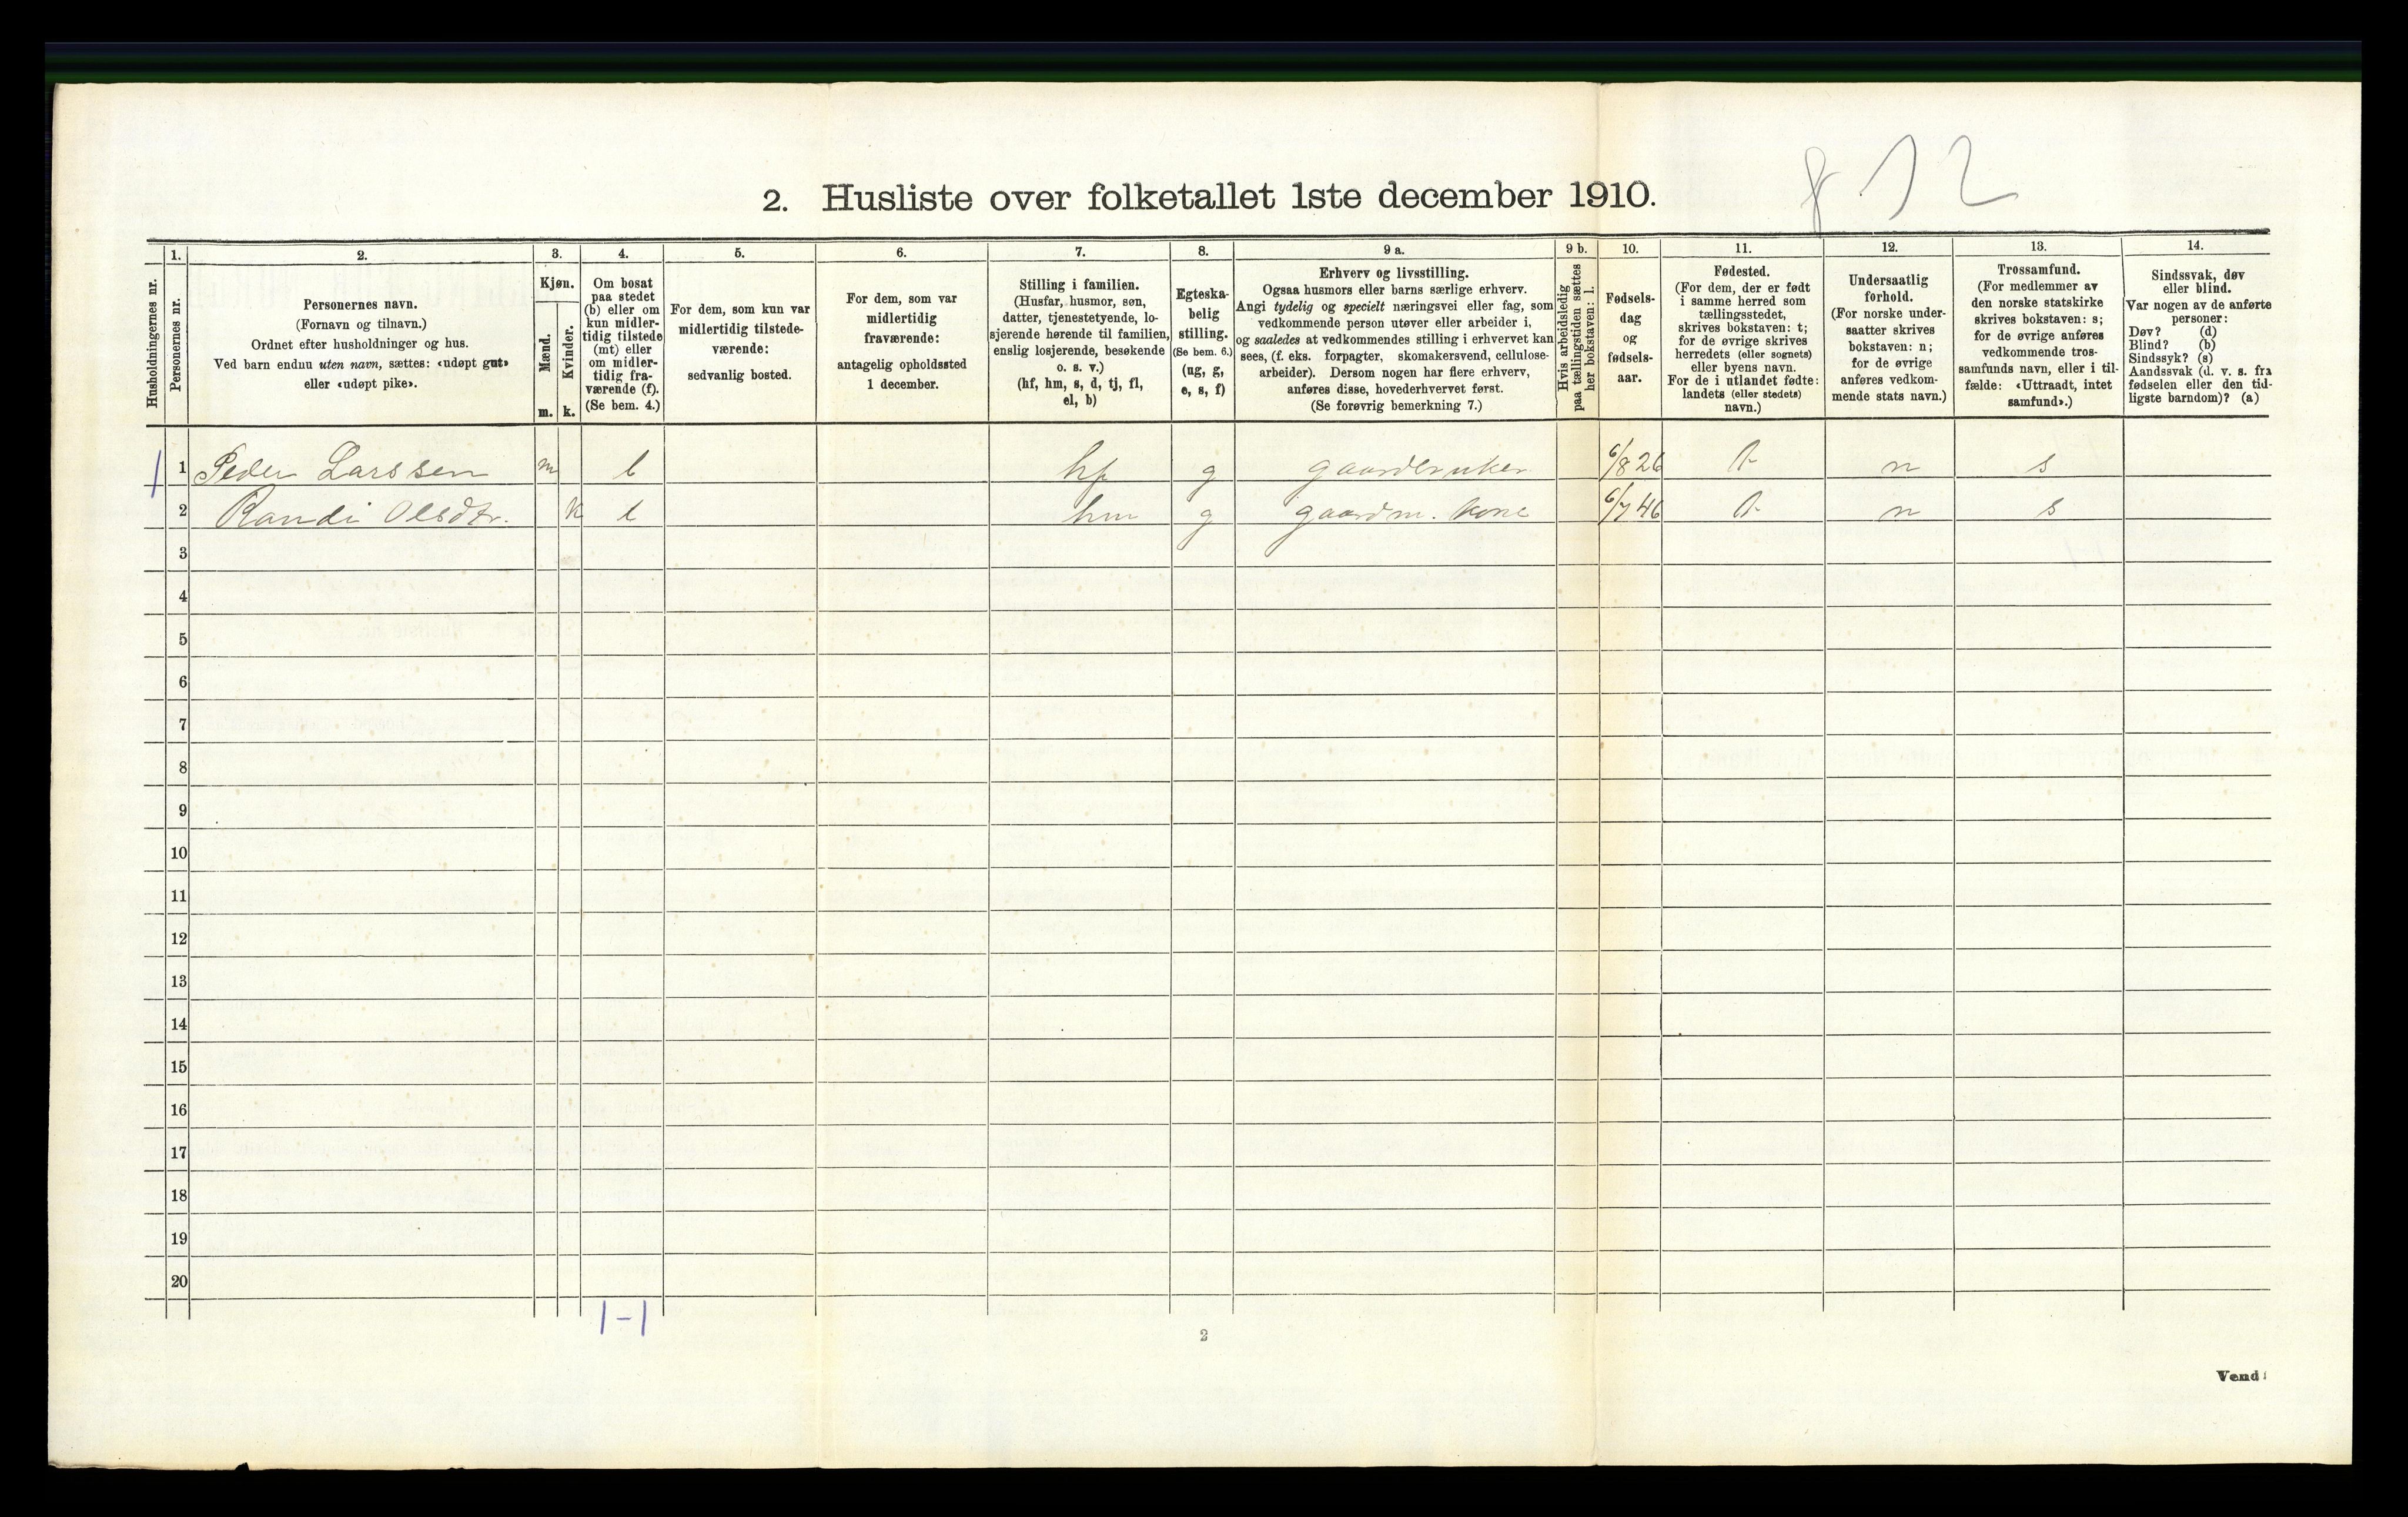 812
2. Husliste over folketallet 1ste december 1910.
Husholdningernes nr.
1.
Personernes nr.
2.
Personernes navn.
(Fornavn og tilnavn.)
Ordnet efter husholdninger og hus.
Ved barn endnu uten navn, sættes: «udøpt gut»
eller «udøpt pike».
3.
Kjøn.
Mænd.
Kvinder.
m. k.
4.
Om bosat
paa stedet
(b) eller om
kun midler-
tidig tilstede
(mt) eller
om midler-
tidig fra-
værende (f).
(Se bem. 4.)
5.
For dem, som kun var
midlertidig tilstede-
værende:
sedvanlig bosted.
6.
For dem, som var
midlertidig
fraværende:
antagelig opholdssted
1 december.
7.
Stilling i familien.
(Husfar, husmor, søn,
datter, tjenestetyende, lo-
sjerende hørende til familien,
enslig losjerende, besøkende
o. s. v.)
(hf, hm, s, d, tj, fl,
el, b)
8.
Egteska-
belig
stilling.
(Se bem. 6.)
(ug, g,
e, s, f)
9 a.
Erhverv og livsstilling.
Ogsaa husmors eller barns særlige erhverv.
Angi tydelig og specielt næringsvei eller fag, som
vedkommende person utøver eller arbeider i,
og saaledes at vedkommendes stilling i erhvervet kan
sees, (f. eks. forpagter, skomakersvend, cellulose-
arbeider). Dersom nogen har flere erhverv,
anføres disse, hovederhvervet først.
(Se forøvrig bemerkning 7.)
9 b.
Hvis arbeidsledig
paa tællingstiden sættes
her bokstaven: l.
10.
Fødsels-
dag
og
fødsels-
aar.
11.
Fødested.
(For dem, der er født
i samme herred som
tællingsstedet,
skrives bokstaven: t;
for de øvrige skrives
herredets (eller sognets)
eller byens navn.
For de i utlandet fødte:
landets (eller stedets)
navn.)
12.
Undersaatlig
forhold.
(For norske under-
saatter skrives
bokstaven: n;
for de øvrige
anføres vedkom-
mende stats navn.)
13.
Trossamfund.
(For medlemmer av
den norske statskirke
skrives bokstaven: s;
for de øvrige anføres
vedkommende tros-
samfunds navn, eller i til-
fælde: «Uttraadt, intet
samfund».)
14.
Sindssvak, døv
eller blind.
Var nogen av de anførte
personer:
Døv? (d)
Blind? (b)
Sindssyk? (s)
Aandssvak (d. v. s. fra
fødselen eller den tid-
ligste barndom)? (a)
1 1 Peder Larssen m b hf g gaardbruker 6/8 26 t n s
2 Randi Olsdtr. k b hm g gaardm. kone 6/7 46 t n s
3
4
5
6
7
8
9
10
11
12
13
14
15
16
17
18
19
20
1-1
2
Vend!